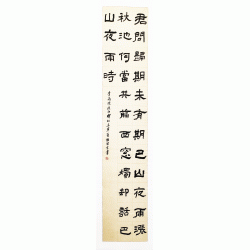 君問歸期未有期巴山夜雨漲
秋池何當共剪西窓燭却話巴
山夜雨時